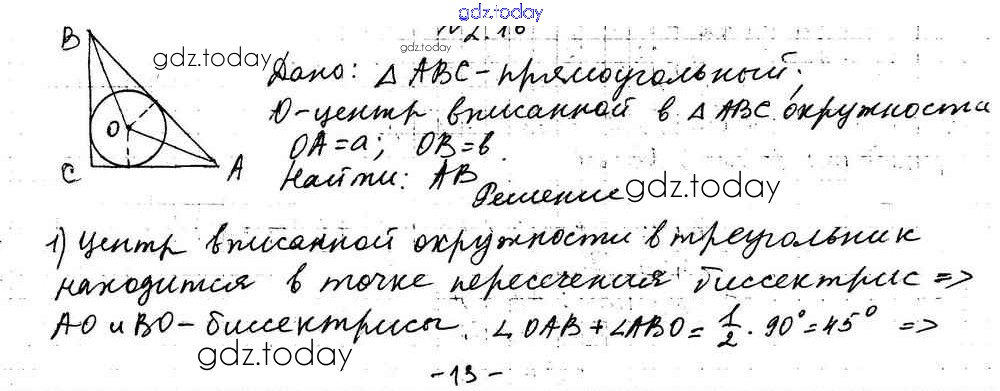 gdz.today
№ 2 16
B
gdz.today
gdz.today
Дано: △ ABC - прямоугольный;
O - центр вписанной в △ ABC окружности
O
OA = a; OB = b
C
A
Найти: AB
Решение
gdz.today
1) Центр вписанной окружности в треугольник
находится в точке пересечения биссектрис =>
AO и BO - биссектрисы. ∠OAB + ∠ABO = 1/2 · 90° = 45° =>
gdz.today
- 13 -